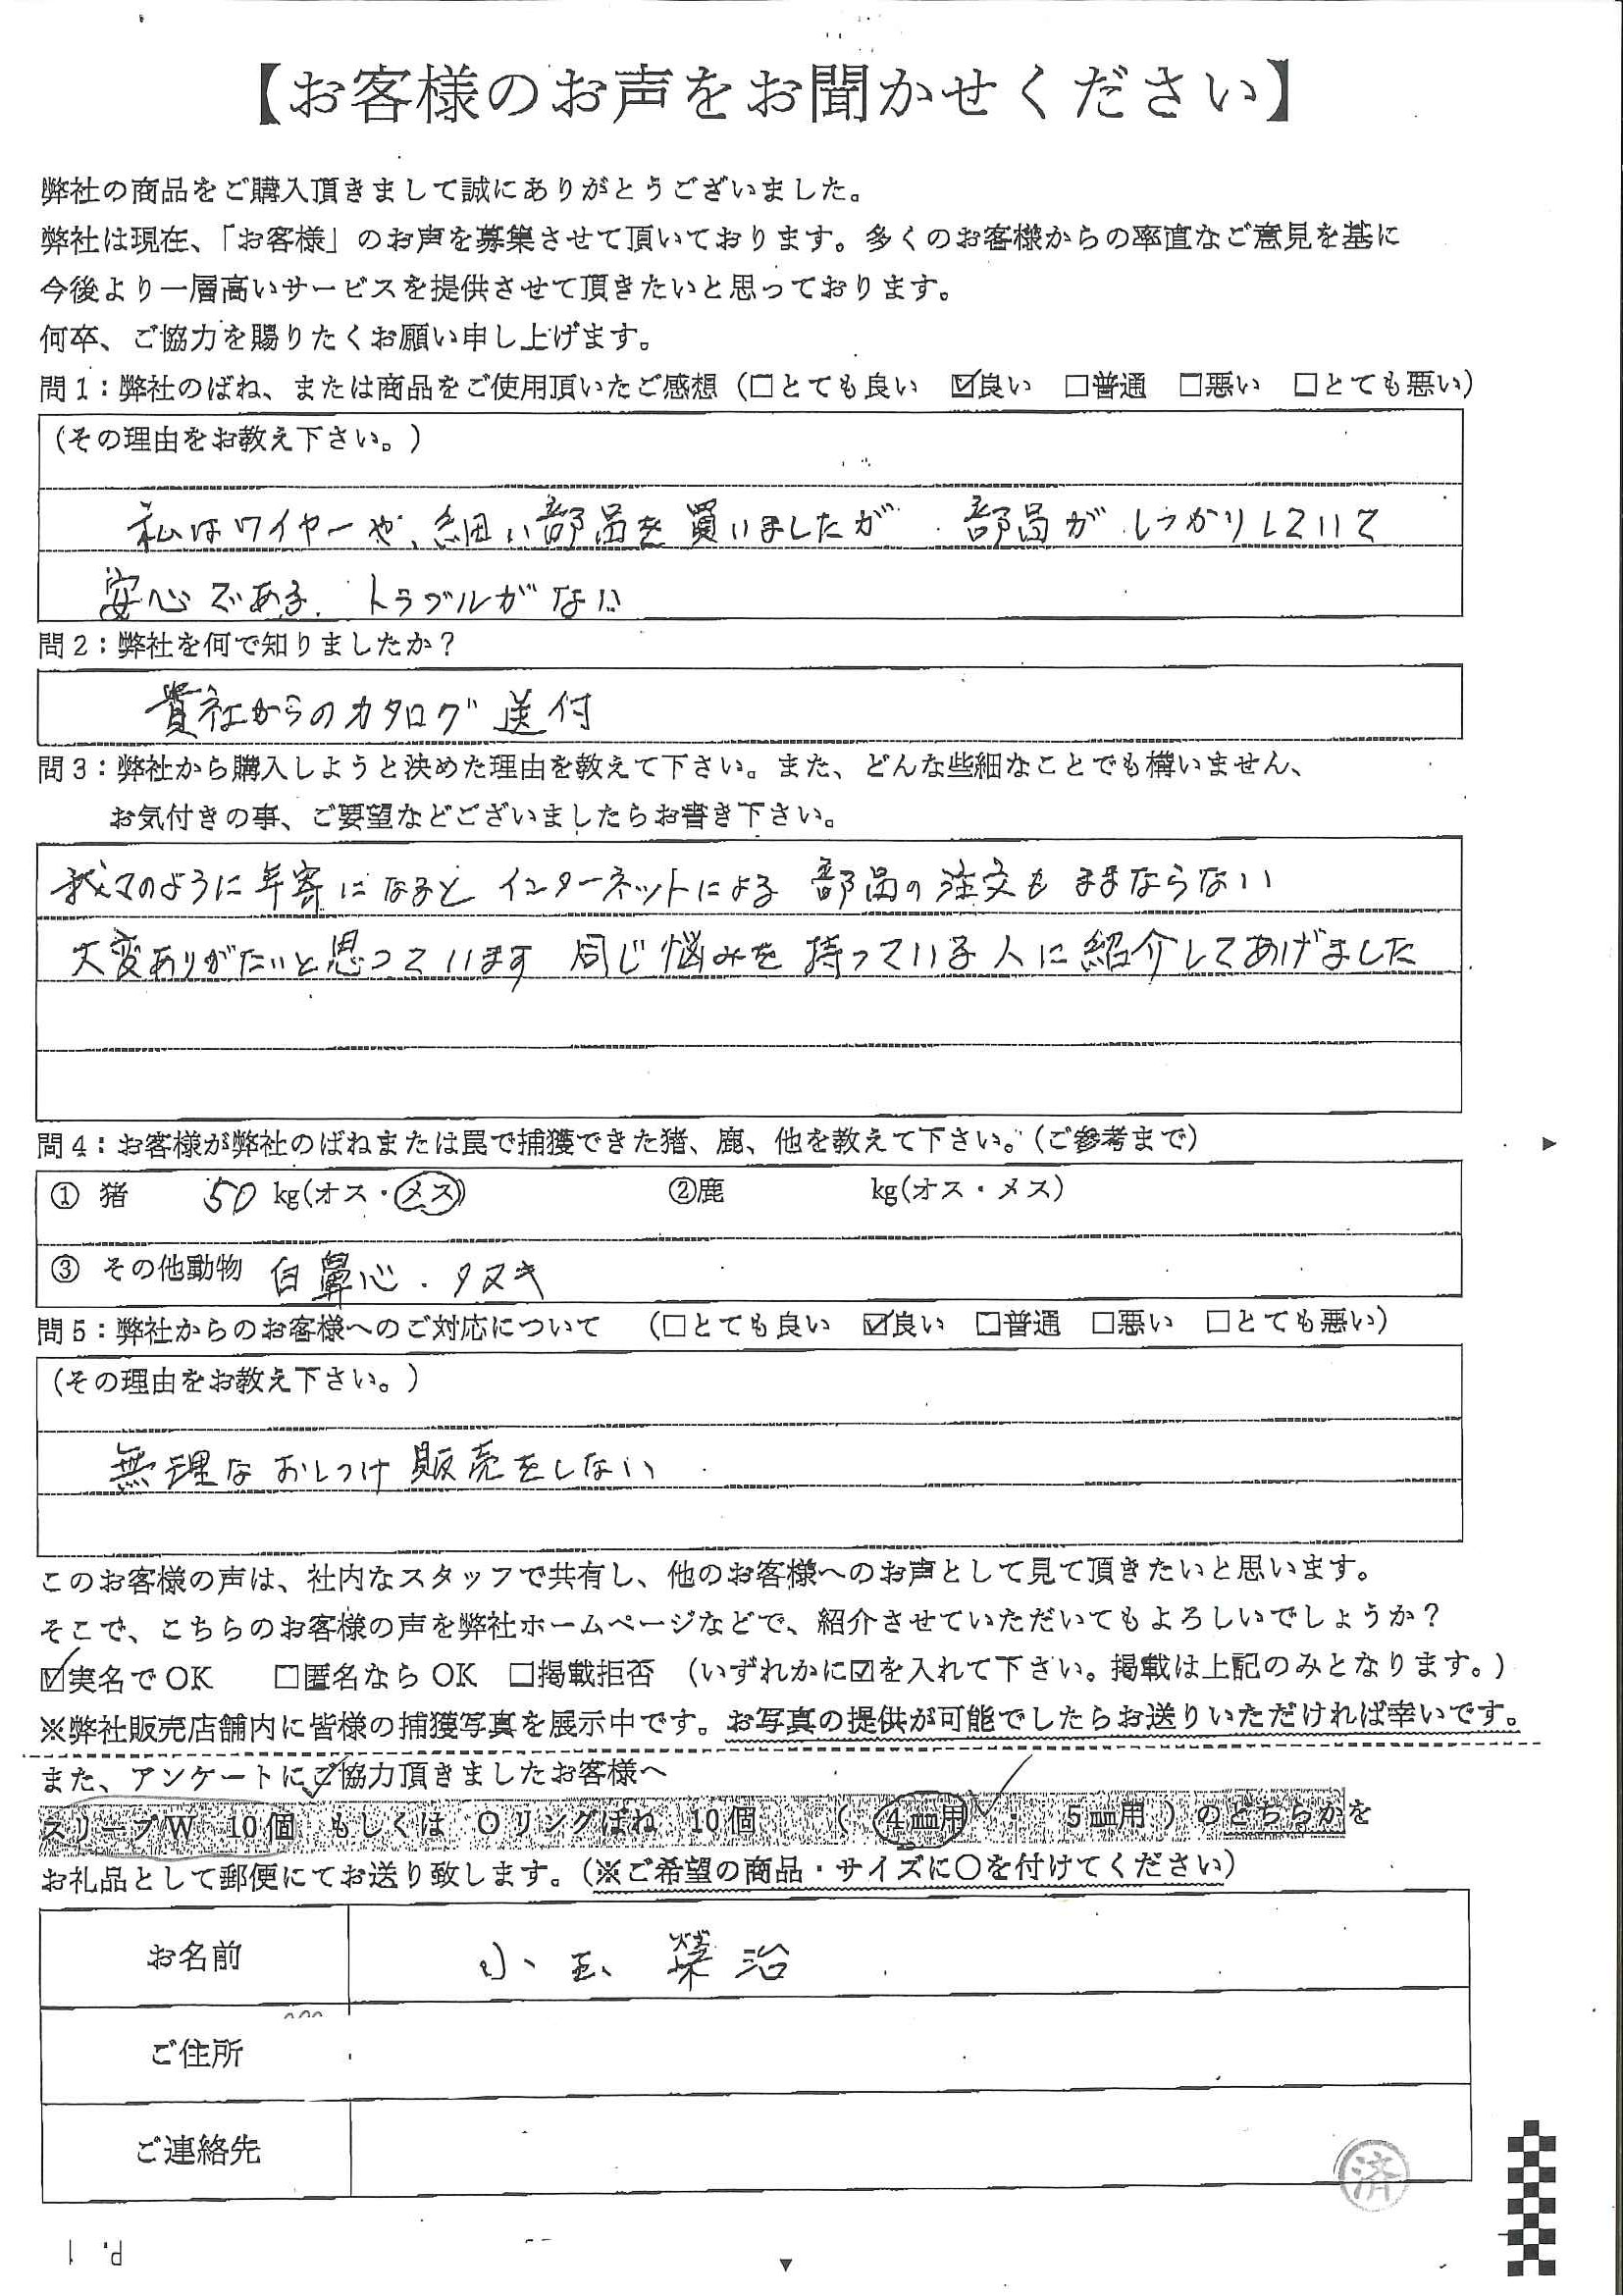 【お客様のお声をお聞かせください】
弊社の商品をご購入頂きまして誠にありがとうございました。
弊社は現在、「お客様」のお声を募集させて頂いております。多くのお客様からの率直なご意見を基に
今後より一層高いサービスを提供させて頂きたいと思っております。
何卒、ご協力を賜りたくお願い申し上げます。
問1：弊社のばね、または商品をご使用頂いたご感想（□とても良い ☑良い □普通 □悪い □とても悪い）
（その理由をお教え下さい。）
私はワイヤーや、細い部品を買いましたが 部品がしっかりしていて
安心である。トラブルがない
問2：弊社を何で知りましたか？
貴社からのカタログ送付
問3：弊社から購入しようと決めた理由を教えて下さい。また、どんな些細なことでも構いません、
お気付きの事、ご要望などございましたらお書き下さい。
我々のように年寄になると インターネットによる 部品の注文もままならない
大変ありがたいと思っています 同じ悩みを持っている人に紹介してあげました
問4：お客様が弊社のばねまたは罠で捕獲できた猪、鹿、他を教えて下さい。（ご参考まで）
① 猪 50 kg(オス・メス) ②鹿 kg(オス・メス)
③ その他動物 白鼻心・タヌキ
問5：弊社からのお客様へのご対応について （□とても良い ☑良い □普通 □悪い □とても悪い）
（その理由をお教え下さい。）
無理なおしつけ販売をしない
このお客様の声は、社内なスタッフで共有し、他のお客様へのお声として見て頂きたいと思います。
そこで、こちらのお客様の声を弊社ホームページなどで、紹介させていただいてもよろしいでしょうか？
☑実名でOK □匿名ならOK □掲載拒否 （いずれかに☑を入れて下さい。掲載は上記のみとなります。）
※弊社販売店舗内に皆様の捕獲写真を展示中です。お写真の提供が可能でしたらお送りいただければ幸いです。
また、アンケートにご協力頂きましたお客様へ
スリーブW 10個 もしくは Oリングばね 10個 （ 4㎜用 ・ 5㎜用 ）のどちらかを
お礼品として郵便にてお送り致します。（※ご希望の商品・サイズに〇を付けてください）
お名前 小玉 榮治
ご住所
ご連絡先
済
P. 1